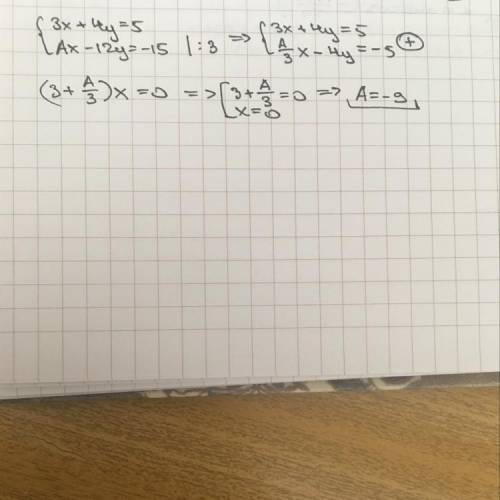 {3x+4y=5 {Ax-12y=-15 |:3 => {3x+4y=5 {A/3x-4y=-5 (+)
(3+A/3)x=0 => [3+A/3=0 [x=0 => A=-9